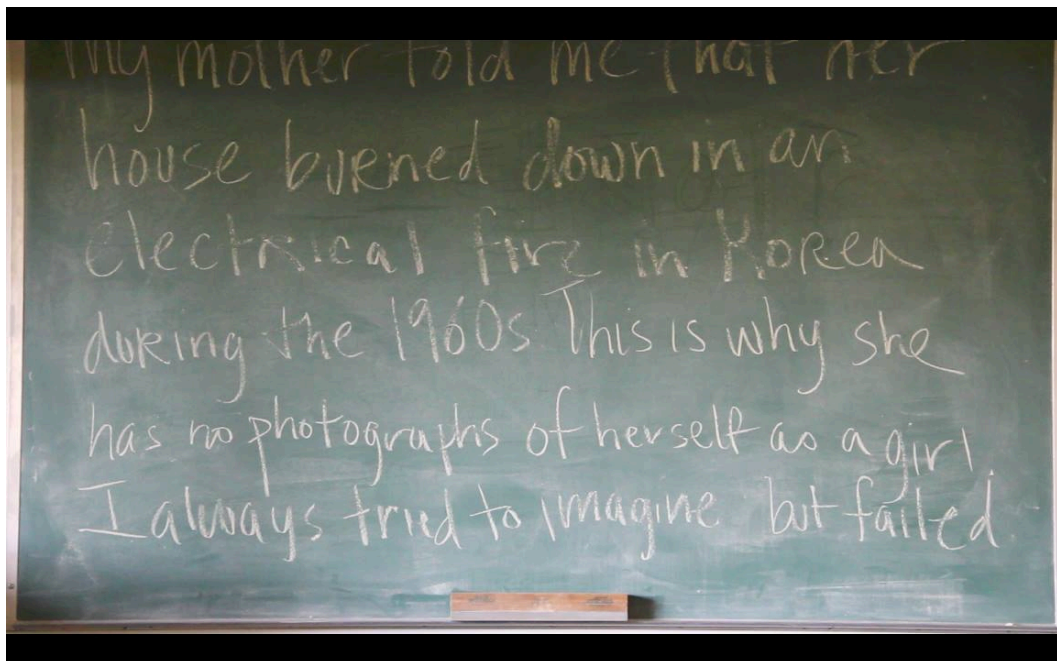 My mother told me that her
house burned down in an
electrical fire in Korea
during the 1960s This is why she
has no photographs of herself as a girl.
I always tried to imagine but failed